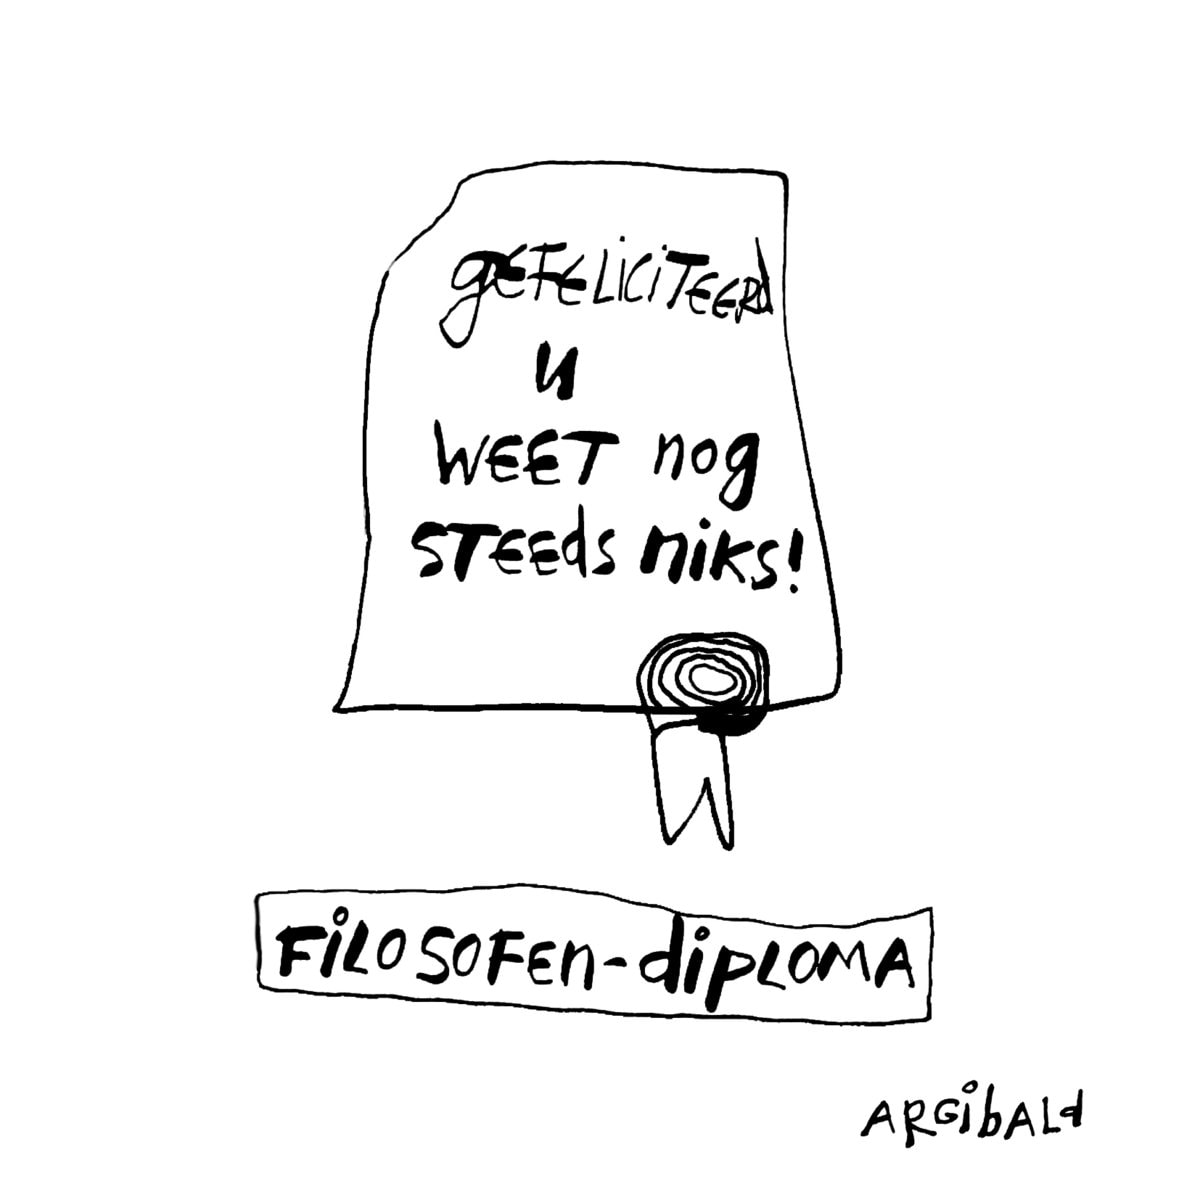 gEFELiCiTEERd
u
WEET nog
STEEds niks!
FiLOSOFEn-dipLOMA
ARGibALd